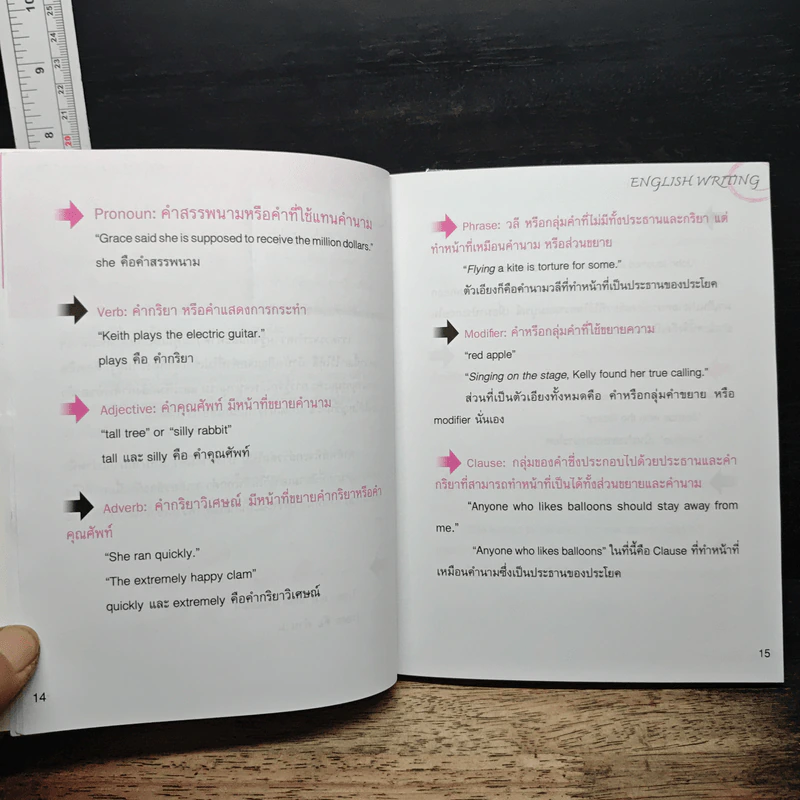 10
9
8
25
24
23
22
21
20
Pronoun: คำสรรพนามหรือคำที่ใช้แทนคำนาม
“Grace said she is supposed to receive the million dollars.”
she คือคำสรรพนาม
Verb: คำกริยา หรือคำแสดงการกระทำ
“Keith plays the electric guitar.”
plays คือ คำกริยา
Adjective: คำคุณศัพท์ มีหน้าที่ขยายคำนาม
“tall tree” or “silly rabbit”
tall และ silly คือ คำคุณศัพท์
Adverb: คำกริยาวิเศษณ์ มีหน้าที่ขยายคำกริยาหรือคำ
คุณศัพท์
“She ran quickly.”
“The extremely happy clam”
quickly และ extremely คือคำกริยาวิเศษณ์
14
ENGLISH WRITING
Phrase: วลี หรือกลุ่มคำที่ไม่มีทั้งประธานและกริยา แต่
ทำหน้าที่เหมือนคำนาม หรือส่วนขยาย
“Flying a kite is torture for some.”
ตัวเอียงก็คือคำนามวลีที่ทำหน้าที่เป็นประธานของประโยค
Modifier: คำหรือกลุ่มคำที่ใช้ขยายความ
“red apple”
“Singing on the stage, Kelly found her true calling.”
ส่วนที่เป็นตัวเอียงทั้งหมดคือ คำหรือกลุ่มคำขยาย หรือ
modifier นั่นเอง
Clause: กลุ่มของคำซึ่งประกอบไปด้วยประธานและคำ
กริยาที่สามารถทำหน้าที่เป็นได้ทั้งส่วนขยายและคำนาม
“Anyone who likes balloons should stay away from
me.”
“Anyone who likes balloons” ในที่นี้คือ Clause ที่ทำหน้าที่
เหมือนคำนามซึ่งเป็นประธานของประโยค
15